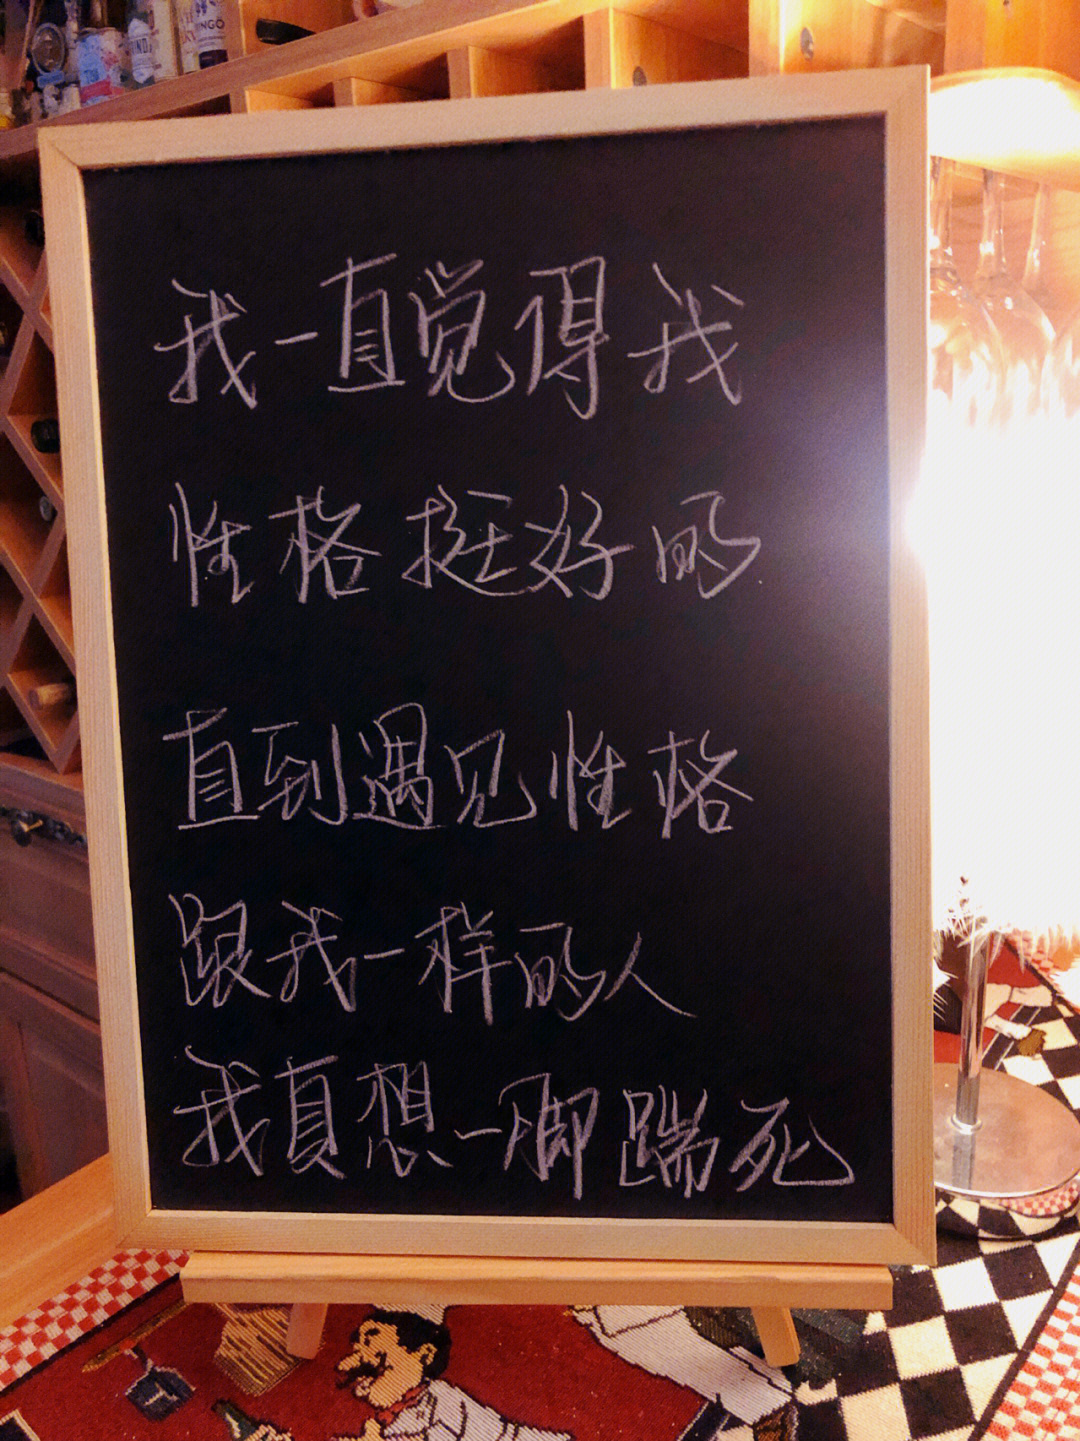 我一直觉得我
性格挺好的
直到遇见性格
跟我一样的人
我真想一脚踹死